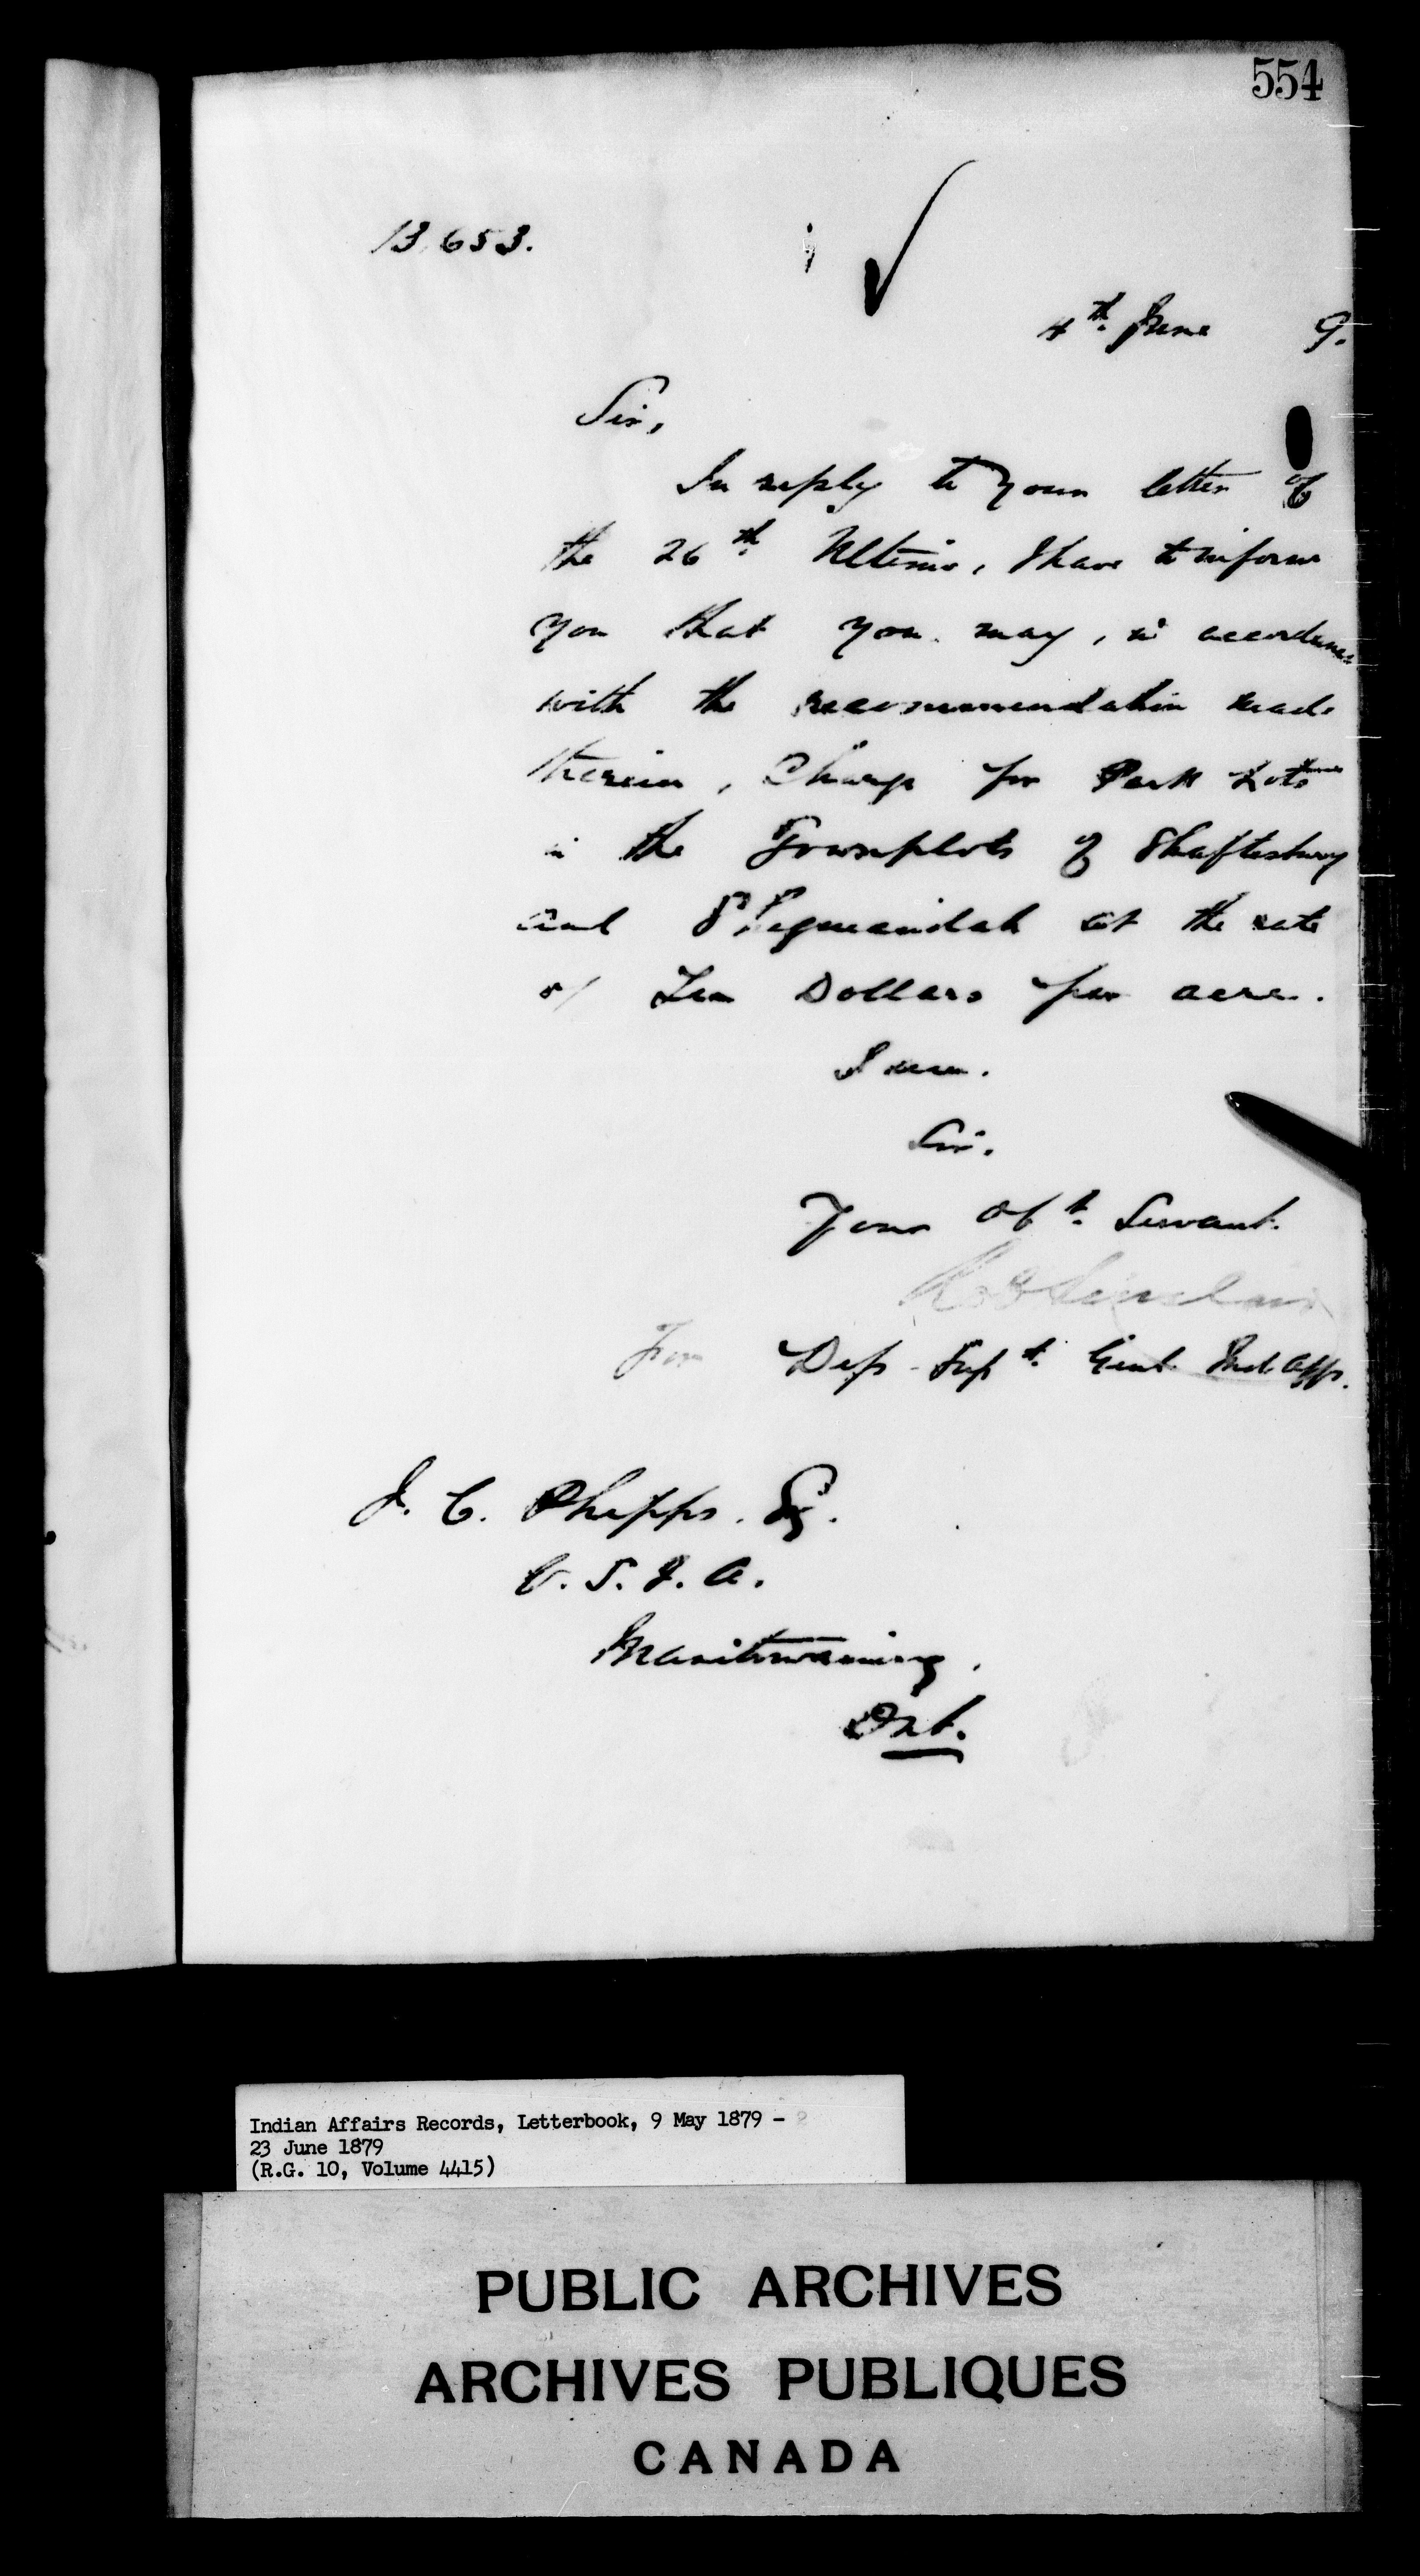 554
13,653.
4th. June 9.
Sir,
In reply to your letter of
the 26th. Ultimo, I have to inform
you that you may, in accordance
with the recommendation made
therein, Charge for Park Lots
in the Townplots of Shaftesbury
and Sheguandah at the rate
of Ten Dollars per acre.
I am.
Sir.
Your Obt. Servant.
Sinclair
For Dep. Supt. Genl. Ind. Affs.
J. C. Phipps. Esq.
V. S. I. A.
Manitowaning,
Ont.
Indian Affairs Records, Letterbook, 9 May 1879 -
23 June 1879
(R.G. 10, Volume 4415)
PUBLIC ARCHIVES
ARCHIVES PUBLIQUES
CANADA